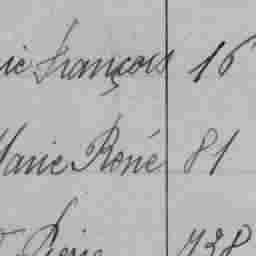 rie François 16
Marie René 81
Pierre 738